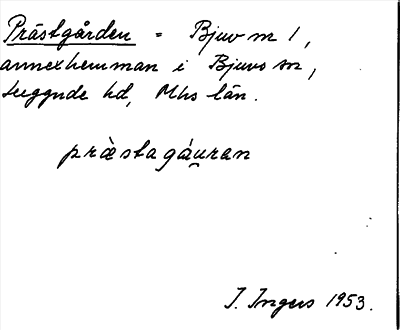 Prästgården = Bjuv nr 1,
annexhemman i Bjuvs sn,
Luggude hd, Mhs län.
prästagáu̯ran
I. Ingers 1953.